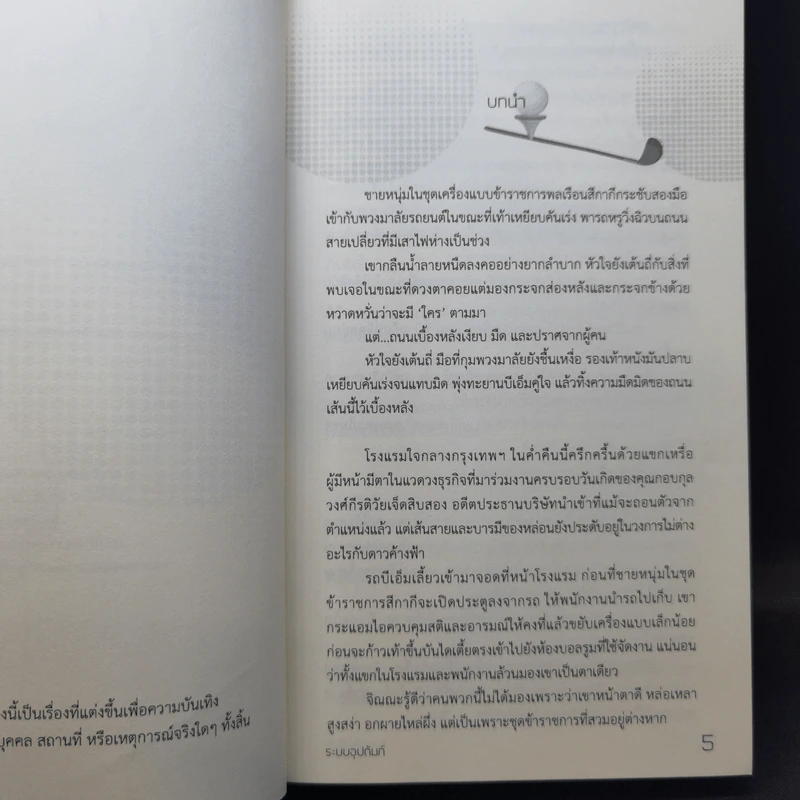 งนี้เป็นเรื่องที่แต่งขึ้นเพื่อความบันเทิง
บุคคล สถานที่ หรือเหตุการณ์จริงใดๆ ทั้งสิ้น
บทนำ
ชายหนุ่มในชุดเครื่องแบบข้าราชการพลเรือนสีกากีกระชับสองมือ
เข้ากับพวงมาลัยรถยนต์ในขณะที่เท้าเหยียบคันเร่ง พารถหรูวิ่งฉิวบนถนน
สายเปลี่ยวที่มีเสาไฟห่างเป็นช่วง
เขากลืนน้ำลายหนืดลงคออย่างยากลำบาก หัวใจยังเต้นถี่กับสิ่งที่
พบเจอในขณะที่ดวงตาคอยแต่มองกระจกส่องหลังและกระจกข้างด้วย
หวาดหวั่นว่าจะมี ‘ใคร’ ตามมา
แต่...ถนนเบื้องหลังเงียบ มืด และปราศจากผู้คน
หัวใจยังเต้นถี่ มือที่กุมพวงมาลัยยังชื้นเหงื่อ รองเท้าหนังมันปลาบ
เหยียบคันเร่งจนแทบมิด พุ่งทะยานบีเอ็มคู่ใจ แล้วทิ้งความมืดมิดของถนน
เส้นนี้ไว้เบื้องหลัง
โรงแรมใจกลางกรุงเทพฯ ในค่ำคืนนี้ครึกครื้นด้วยแขกเหรื่อ
ผู้มีหน้ามีตาในแวดวงธุรกิจที่มาร่วมงานครบรอบวันเกิดของคุณกอบกุล
วงศ์กีรติวัยเจ็ดสิบสอง อดีตประธานบริษัทนำเข้าที่แม้จะถอนตัวจาก
ตำแหน่งแล้ว แต่เส้นสายและบารมีของหล่อนยังประดับอยู่ในวงการไม่ต่าง
อะไรกับดาวค้างฟ้า
รถบีเอ็มเลี้ยวเข้ามาจอดที่หน้าโรงแรม ก่อนที่ชายหนุ่มในชุด
ข้าราชการสีกากีจะเปิดประตูลงจากรถ ให้พนักงานนำรถไปเก็บ เขา
กระแอมไอควบคุมสติและอารมณ์ให้คงที่แล้วขยับเครื่องแบบเล็กน้อย
ก่อนจะก้าวเท้าขึ้นบันไดเตี้ยตรงเข้าไปยังห้องบอลรูมที่ใช้จัดงาน แน่นอน
ว่าทั้งแขกในโรงแรมและพนักงานล้วนมองเขาเป็นตาเดียว
จิณณะรู้ดีว่าคนพวกนี้ไม่ได้มองเพราะว่าเขาหน้าตาดี หล่อเหลา
สูงสง่า อกผายไหล่ผึ่ง แต่เป็นเพราะชุดข้าราชการที่สวมอยู่ต่างหาก
ระบบอุปถัมภ์
5